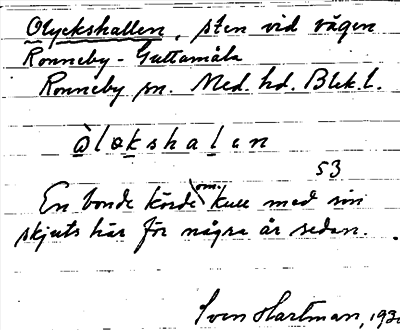 Olyckshallen, sten vid vägen
Ronneby - Guttamåla
Ronneby sn. Med. hd. Blek. l.
òløkshalen
53
En bonde körde om kull med sin
skjuts här för några år sedan.
Sven Hartman,